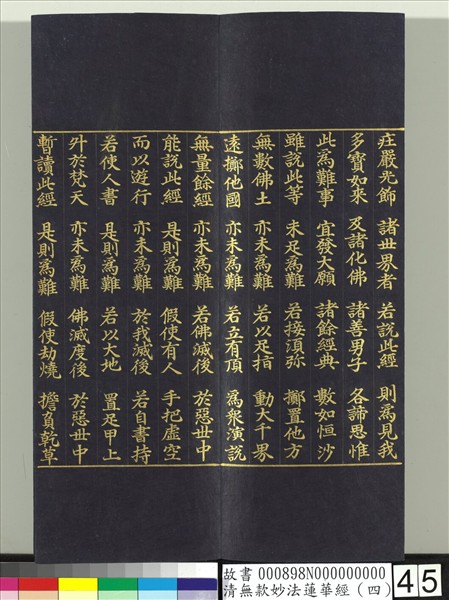 莊嚴光飾 諸世界者 若說此經 則為見我
多寶如來 及諸化佛 諸善男子 各諦思惟
此為難事 宜發大願 諸餘經典 數如恒沙
雖說此等 未足為難 若接須弥 擲置他方
無數佛土 亦未為難 若以足指 動大千界
遠擲他國 亦未為難 若立有頂 為眾演說
無量餘經 亦未為難 若佛滅後 於惡世中
能說此經 是則為難 假使有人 手把虛空
而以遊行 亦未為難 於我滅後 若自書持
若使人書 是則為難 若以大地 置足甲上
升於梵天 亦未為難 佛滅度後 於惡世中
暫讀此經 是則為難 假使劫燒 擔負乾草
故書 000898N000000000
清無款妙法蓮華經(四)
45